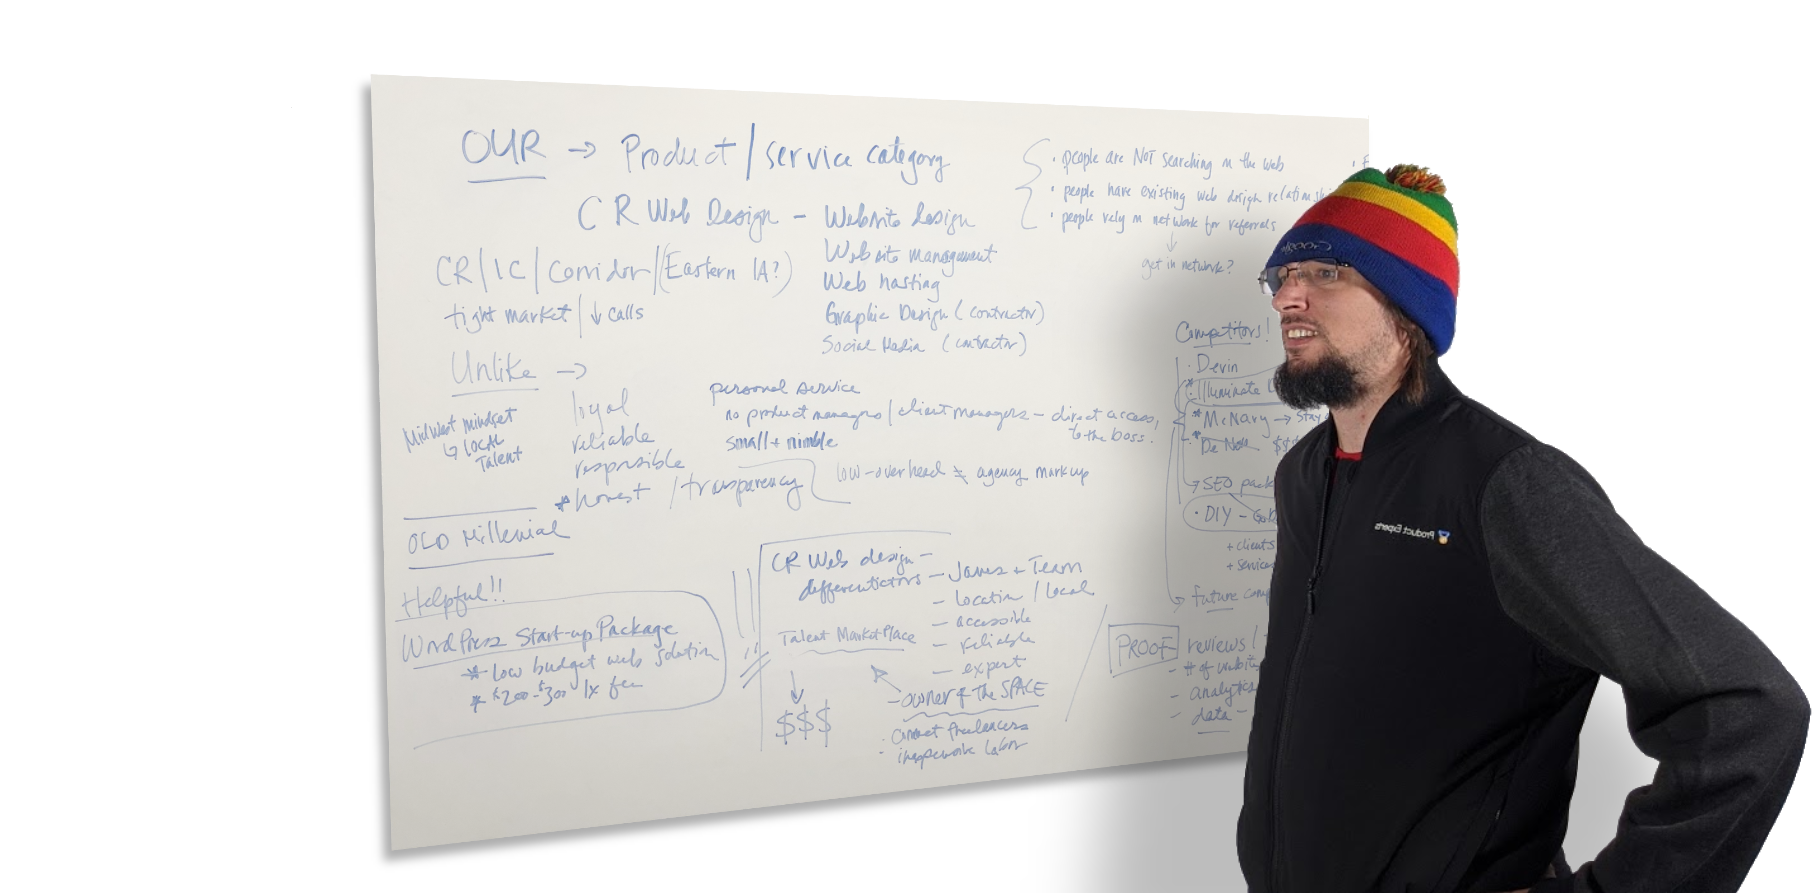 OUR → Product / service category
CR Web Design - Website design
Website management
Web hosting
Graphic Design (contractor)
Social Media (contractor)
CR / IC / Corridor / (Eastern IA?)
tight market / ↓ calls
Unlike →
Midwest mindset
↳ LOCAL
Talent
loyal
reliable
responsible
* honest / transparency
personal service
no product managers / client managers - direct access,
to the boss.
small + nimble
low-overhead ≠ agency markup
OLD Millenial
Helpful!!
WordPress Start-up Package
* low budget web solution
* $200-$300 1x fee
CR Web design -
differentiators - James + Team
- location / local
- accessible
- reliable
- expert
Talent MarketPlace
$$$
- owner of the SPACE
· connect freelancers
· people are NOT searching on the web
· people have existing web design
· people rely on network for referrals
↓
get in network?
Competitors!
· Devin
· Illuminate
* McNary → Stay
* De Novo
→ SEO
· DIY -
+ clients
+
→ future
PROOF reviews /
- # of
- analytics
- data -
Google
Product Experts